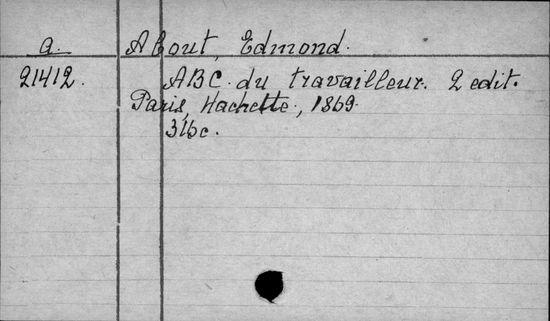 a. About, Edmond.
21412. ABC du travailleur. 2 edit.
Paris, Hachette, 1869.
316c.